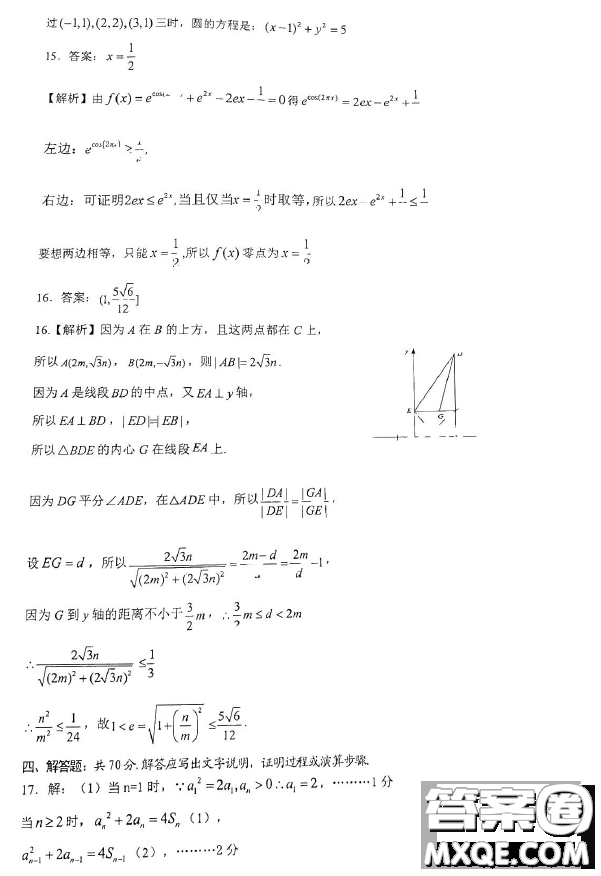 过(-1,1),(2,2),(3,1)三时，圆的方程是：(x-1)²+y²=5
15．答案：x=1/2
【解析】由f(x)=e^cos +e^{2x}-2ex-1/ =0得e^{cos(2πx)}=2ex-e^{2x}+1/
左边：e^{cos(2πx)}≥
右边：可证明2ex≤e^{2x},当且仅当x=1/2时取等，所以2ex-e^{2x}+1/ ≤1/
要想两边相等，只能x=1/2,所以f(x)零点为x=1/2
16．答案：(1,5√6/12]
16.【解析】因为A在B的上方，且这两点都在C上，
所以A(2m,√3n)，B(2m,-√3n)，则|AB|=2√3n.
因为A是线段BD的中点，又EA⊥y轴，
所以EA⊥BD，|ED|=|EB|，
所以△BDE的内心G在线段EA上.
因为DG平分∠ADE，在△ADE中，所以|DA|/|DE|=|GA|/|GE|，
设EG=d，所以2√3n/√((2m)²+(2√3n)²)=2m-d/ =2m/d-1，
因为G到y轴的距离不小于3/2m，∴3/2m≤d<2m
∴2√3n/√((2m)²+(2√3n)²)≤1/3
∴n²/m²≤1/24，故1<e=√(1+(n/m)²)≤5√6/12.
y
D
E
G
四、解答题：共70分.解答应写出文字说明，证明过程或演算步骤.
17．解：（1）当n=1时，∵a₁²=2a₁,aₙ>0∴a₁=2，………1分
当n≥2时，aₙ²+2aₙ=4Sₙ（1），
aₙ₋₁²+2aₙ₋₁=4Sₙ₋₁（2），………2分
答案圈
MXQE.COM